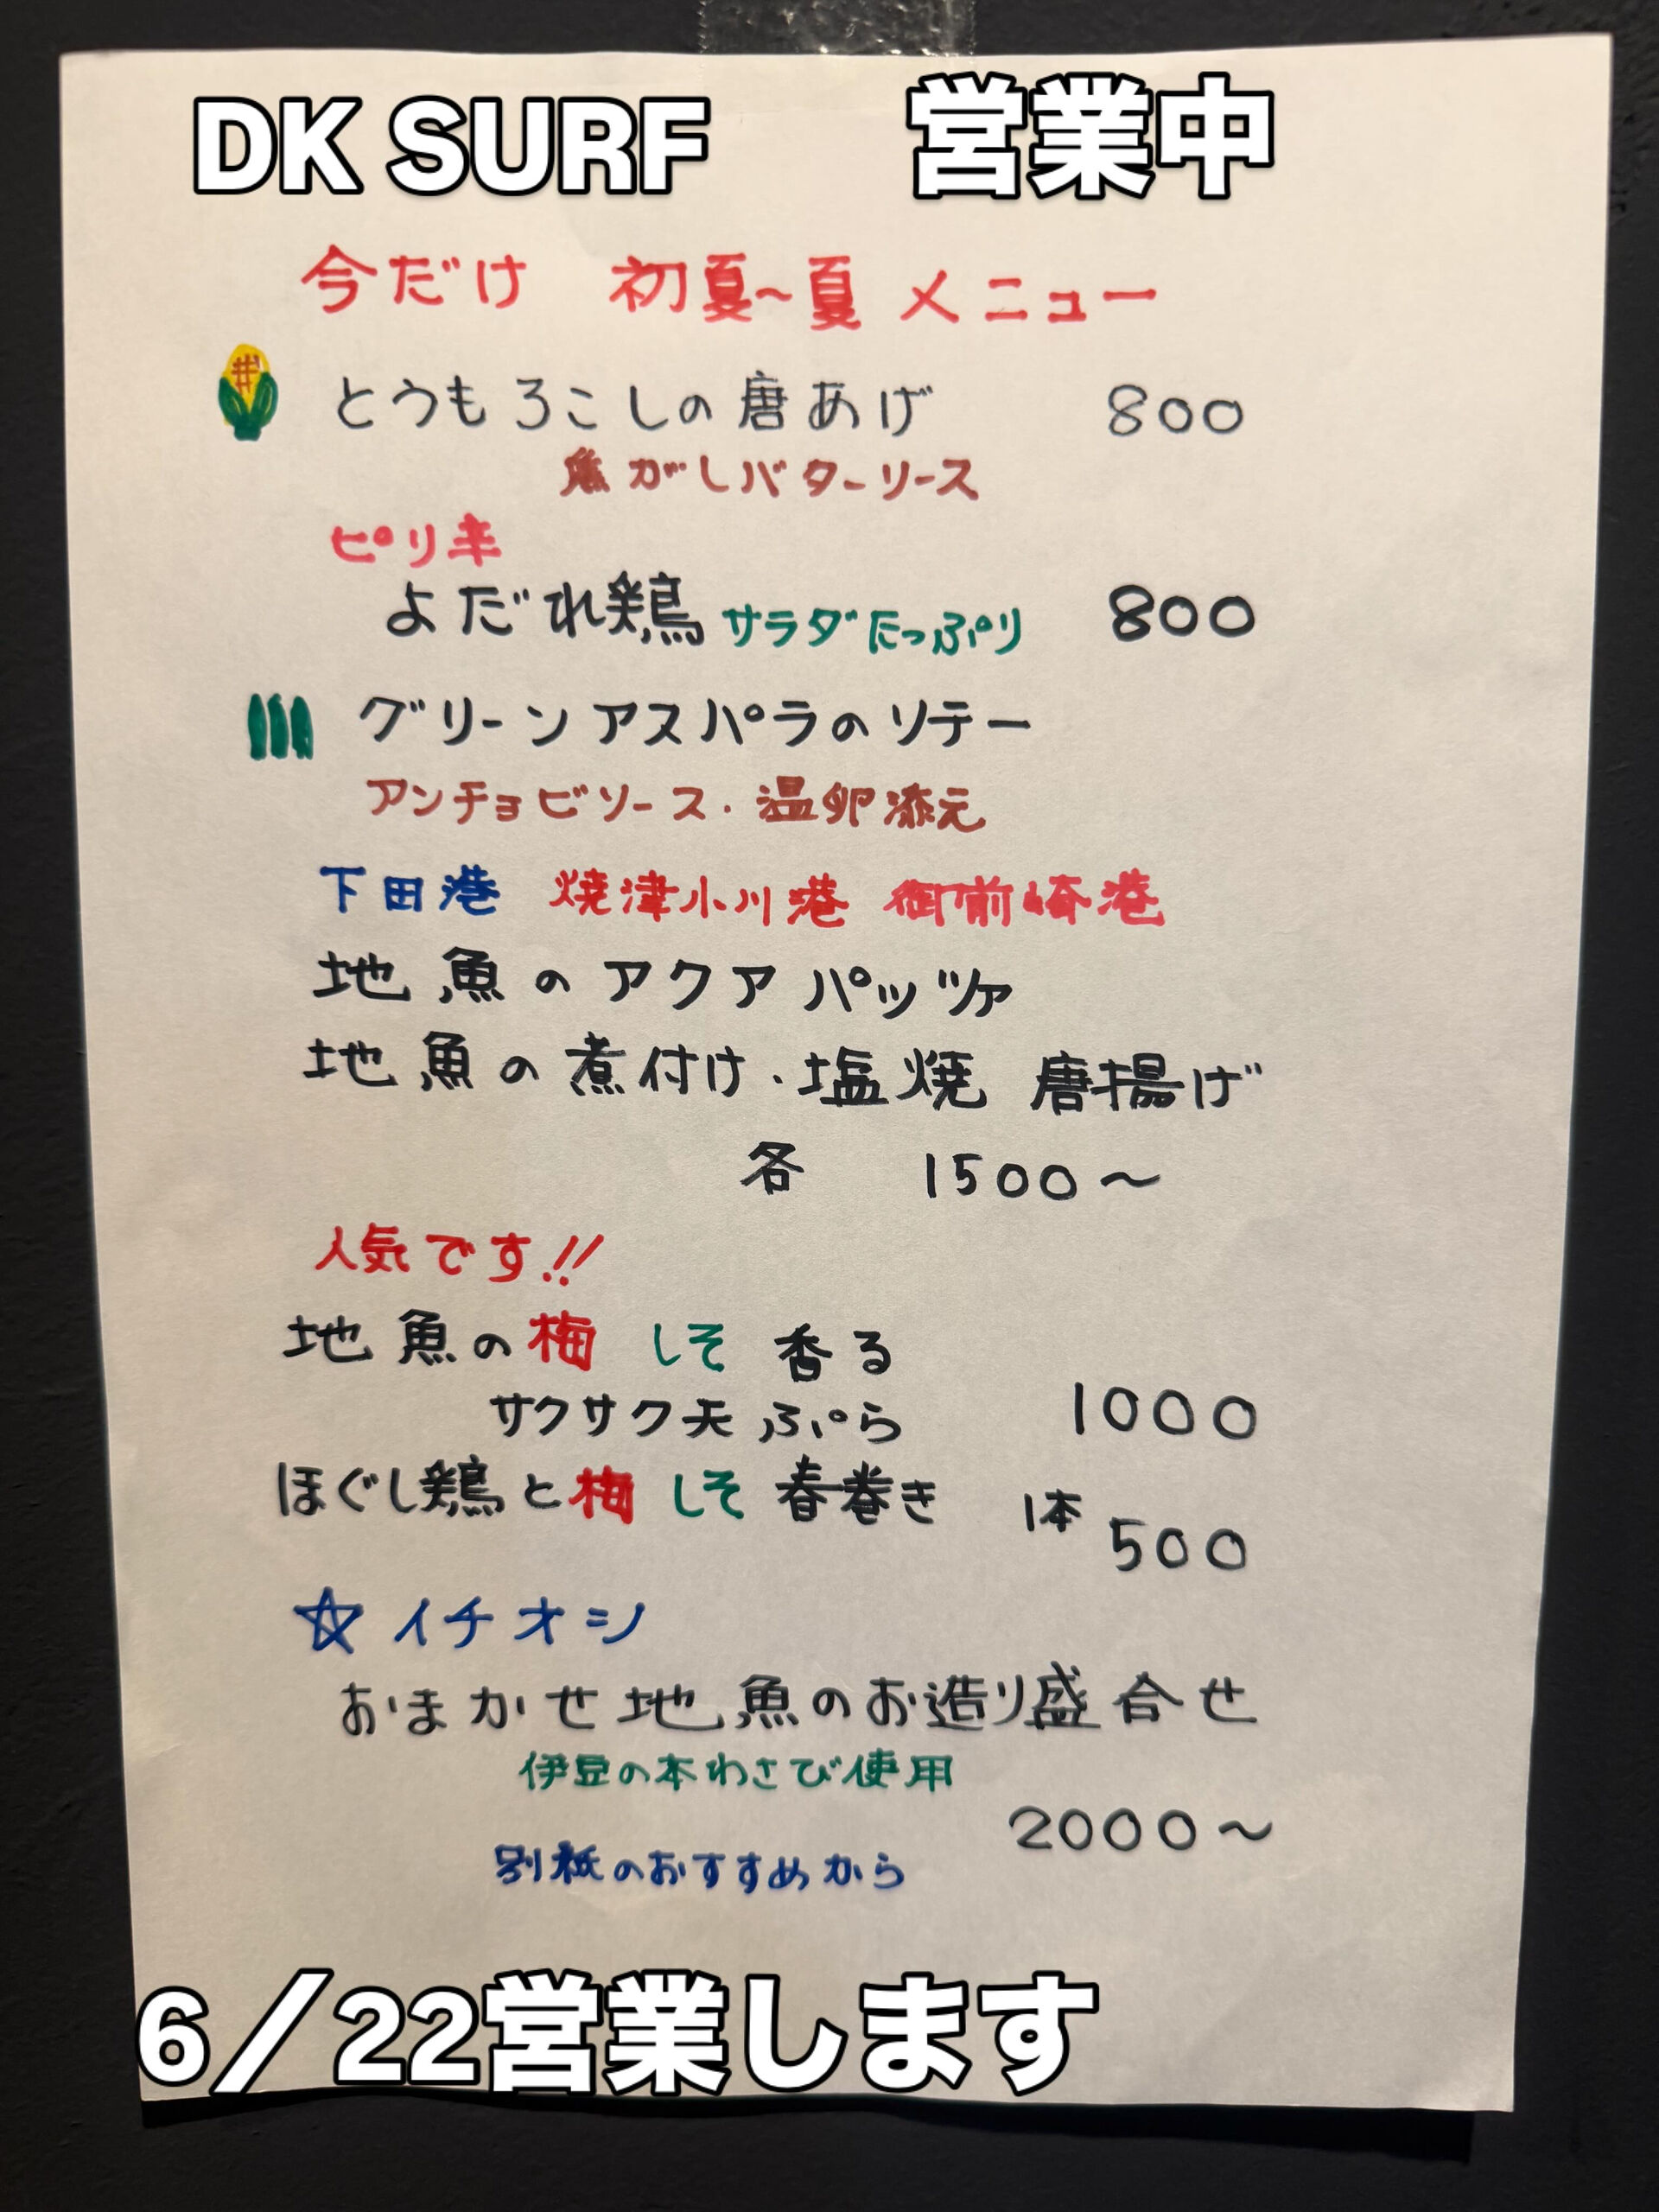 DK SURF 営業中
今だけ 初夏〜夏 メニュー
とうもろこしの唐あげ 800
焦がしバターソース
ピリ辛
よだれ鶏 サラダたっぷり 800
グリーンアスパラのソテー
アンチョビソース・温卵添え
下田港 焼津小川港 御前崎港
地魚のアクアパッツァ
地魚の煮付け・塩焼 唐揚げ
各 1500〜
人気です!!
地魚の梅 しそ 香る
サクサク天ぷら 1000
ほぐし鶏と梅 しそ 春巻き 1本 500
☆イチオシ
おまかせ地魚のお造り盛合せ
伊豆の本わさび使用
2000〜
別紙のおすすめから
6/22営業します